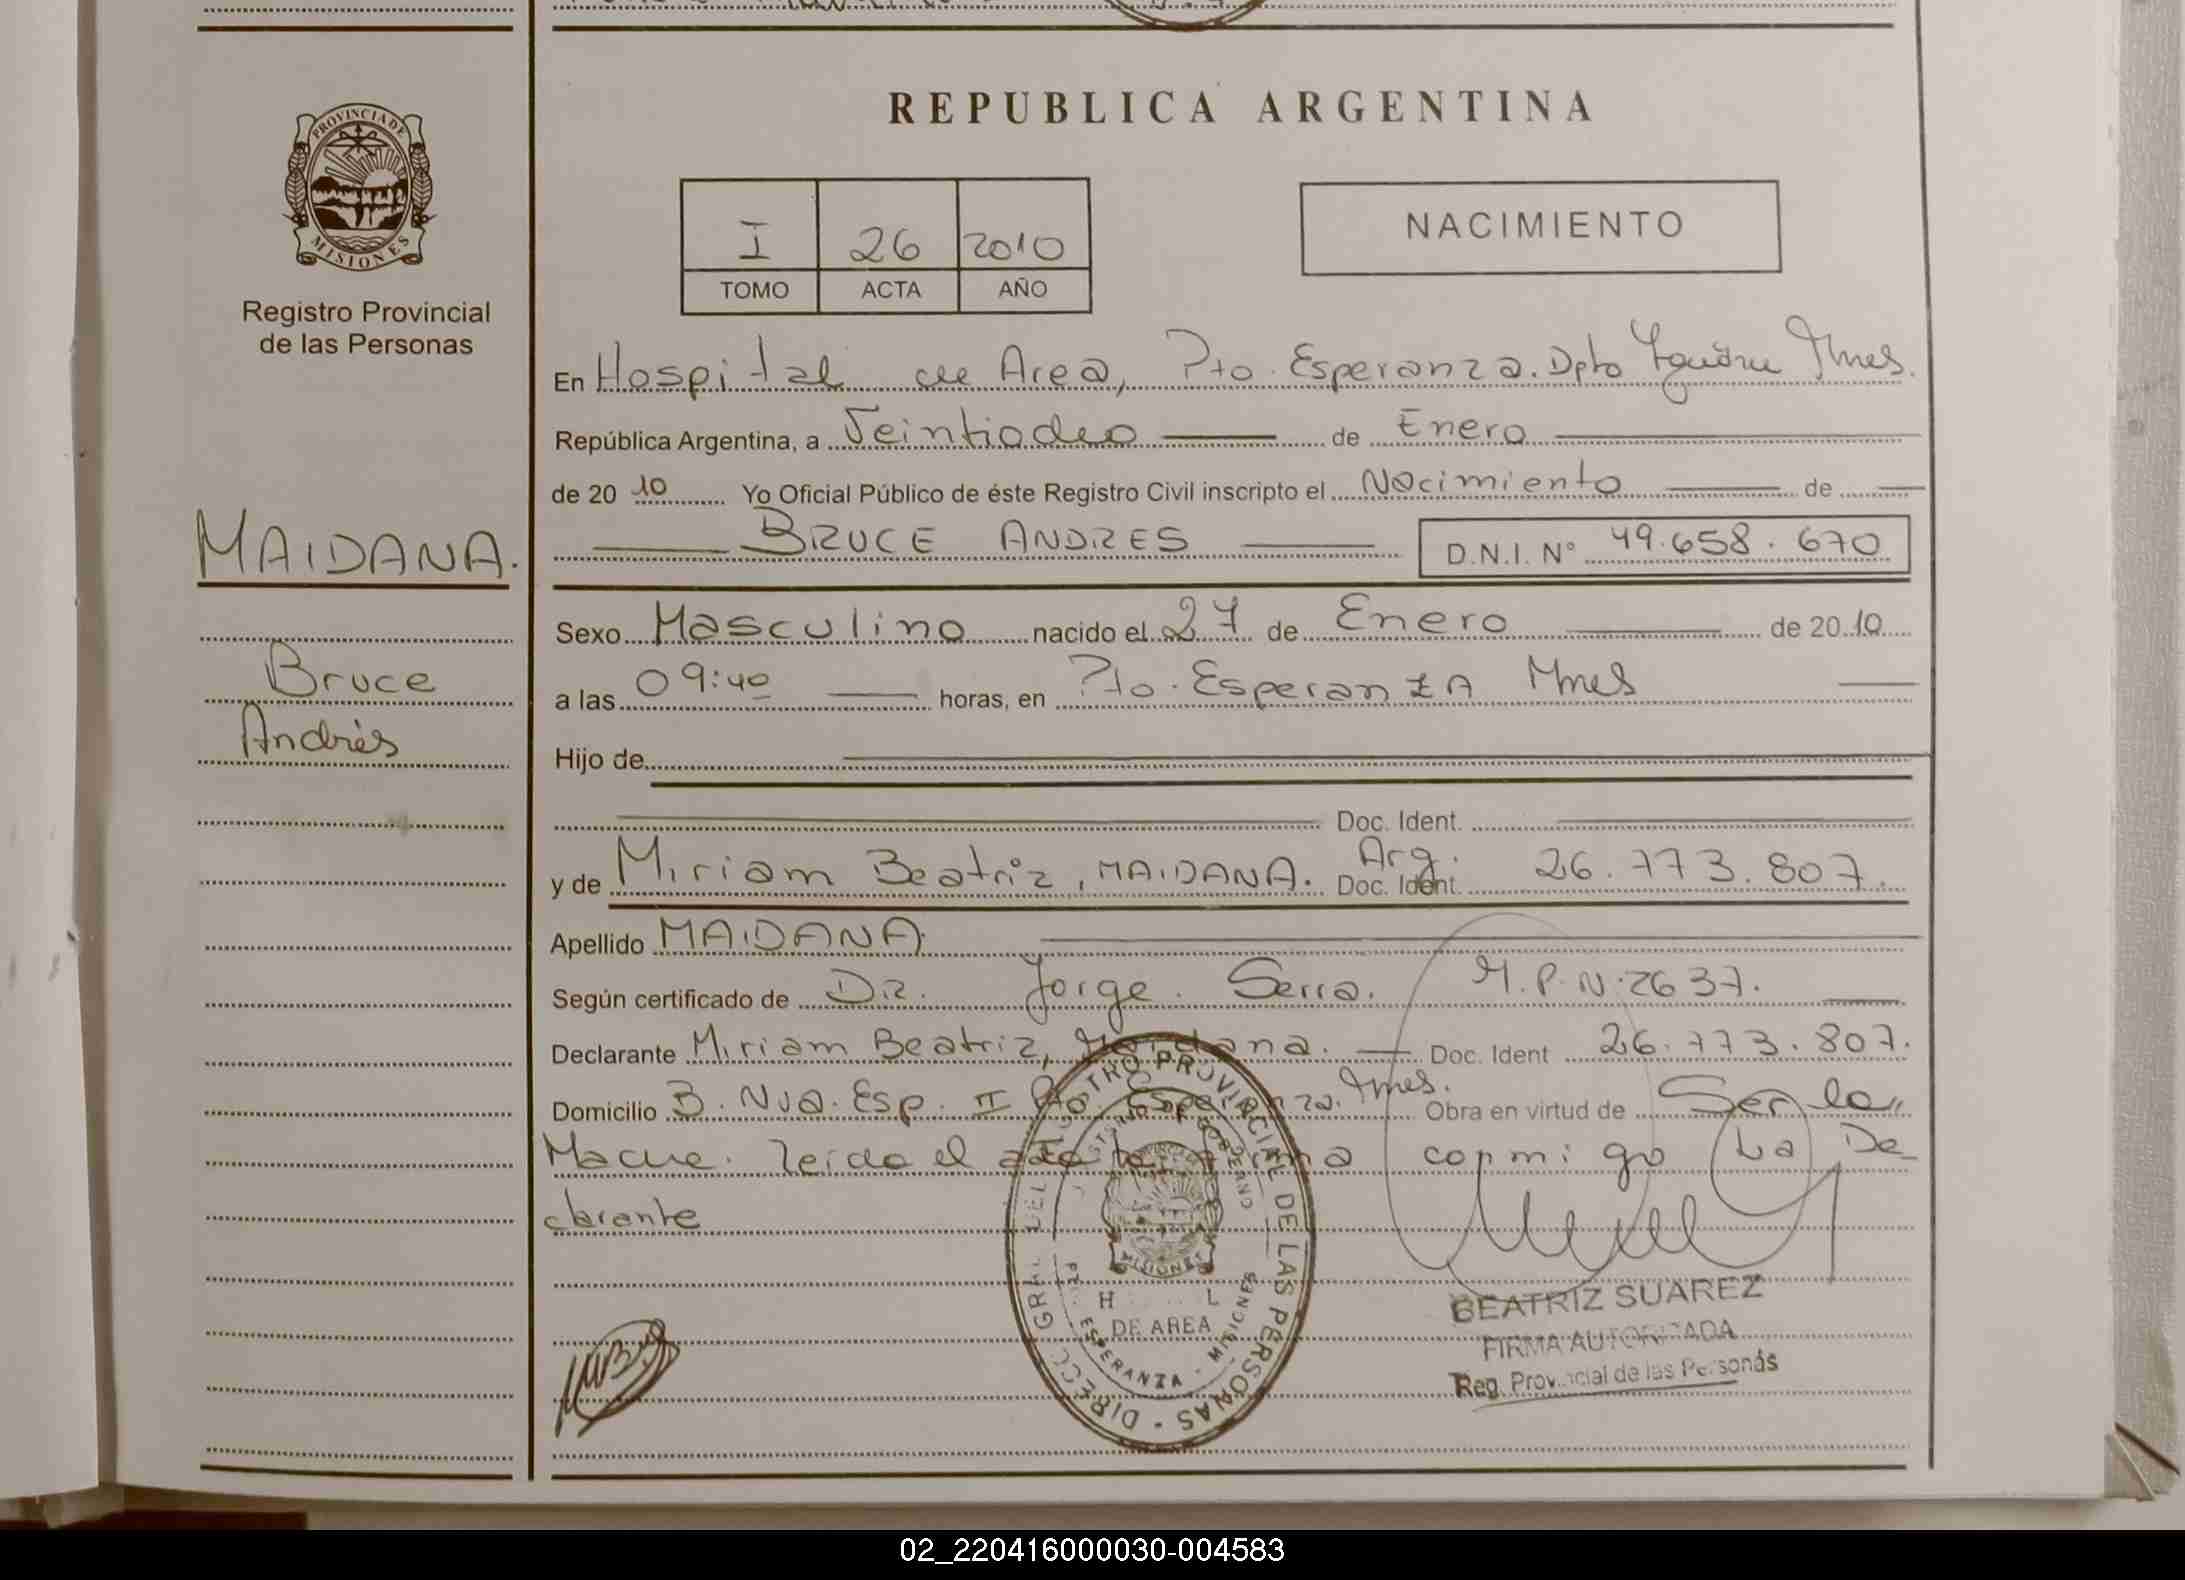 REPUBLICA ARGENTINA
PROVINCIA DE
MISIONES
Registro Provincial
de las Personas
I 26 2010
TOMO ACTA AÑO
NACIMIENTO
En Hospital de Area, Pto. Esperanza. Dpto Iguazu Mnes.
República Argentina, a Veintiocho de Enero
de 20 10 Yo Oficial Público de éste Registro Civil inscripto el Nacimiento de
BRUCE ANDRES D.N.I. N° 49.658.670
MAIDANA.
Bruce
Andrés
Sexo Masculino nacido el 27 de Enero de 20 10
a las 09:40 horas, en Pto. Esperanza Mnes
Hijo de
Doc. Ident.
y de Miriam Beatriz, MAIDANA. Arg. Doc. Ident. 26.773.807.
Apellido MAIDANA.
Según certificado de Dr. Jorge Serra. M.P.N: 2637.
Declarante Miriam Beatriz, Maidana. Doc. Ident 26.773.807.
Domicilio B. Nva. Esp. II Pto. Esperanza. Mnes. Obra en virtud de Ser la
Madre. Leido el acta la firma conmigo La De
clarante
DIRECC. GRAL. DEL REGISTRO PROVINCIAL DE LAS PERSONAS
MISIONES
DE AREA
ESPERANZA - MISIONES
BEATRIZ SUAREZ
FIRMA AUTORIZADA
Reg. Provincial de las Personas
02_220416000030-004583